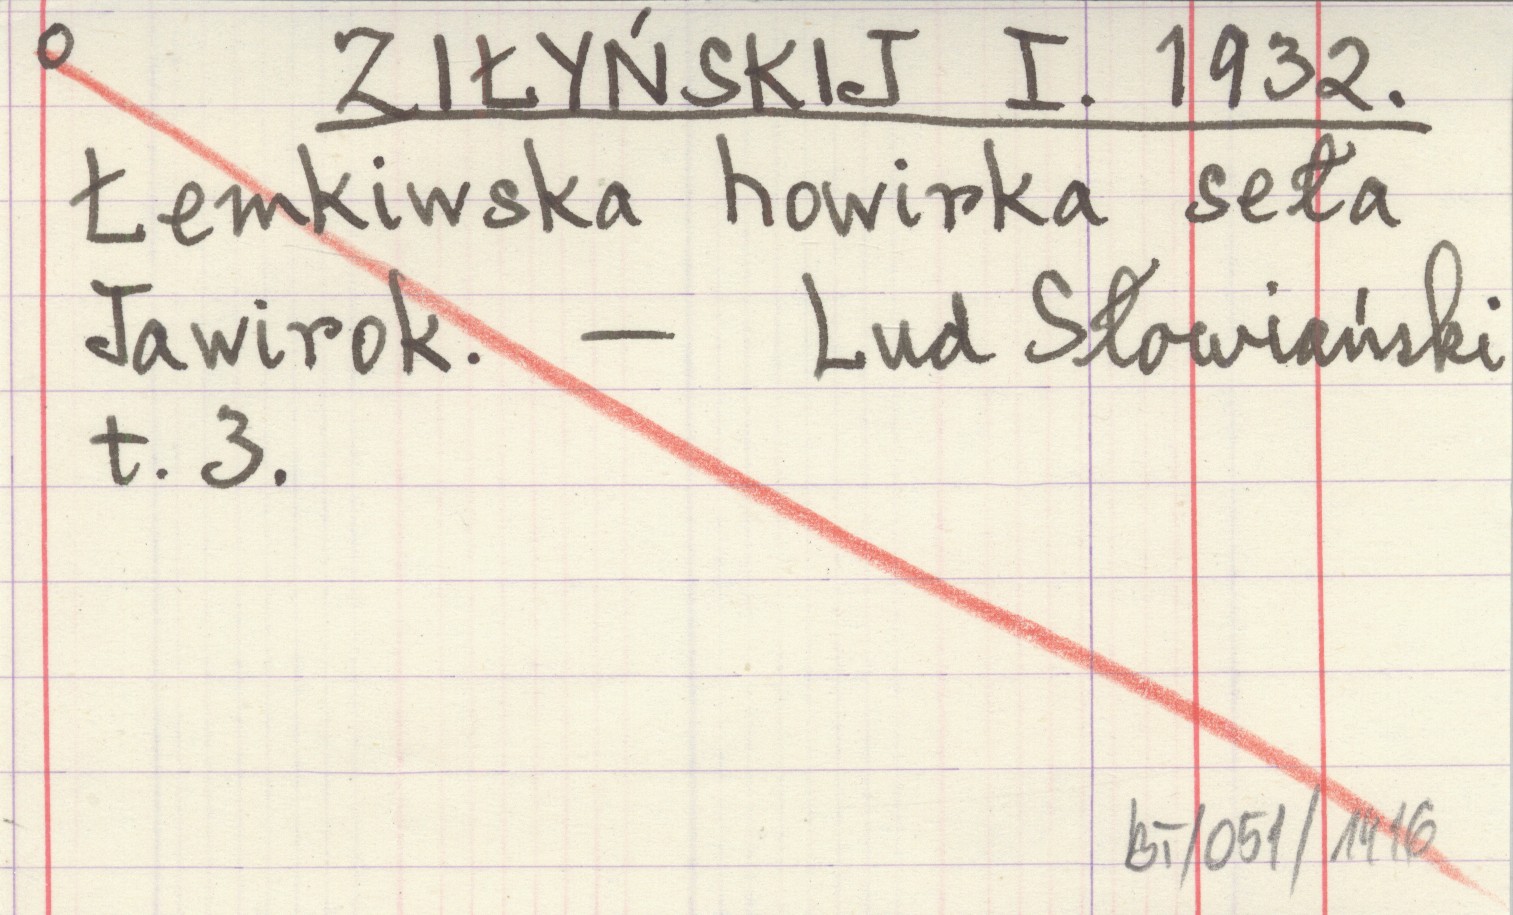 o
ZIŁYŃSKIJ I. 1932.
Łemkiwska howirka seła
Jawirok. — Lud Słowiański
t. 3.
BI/051/1416